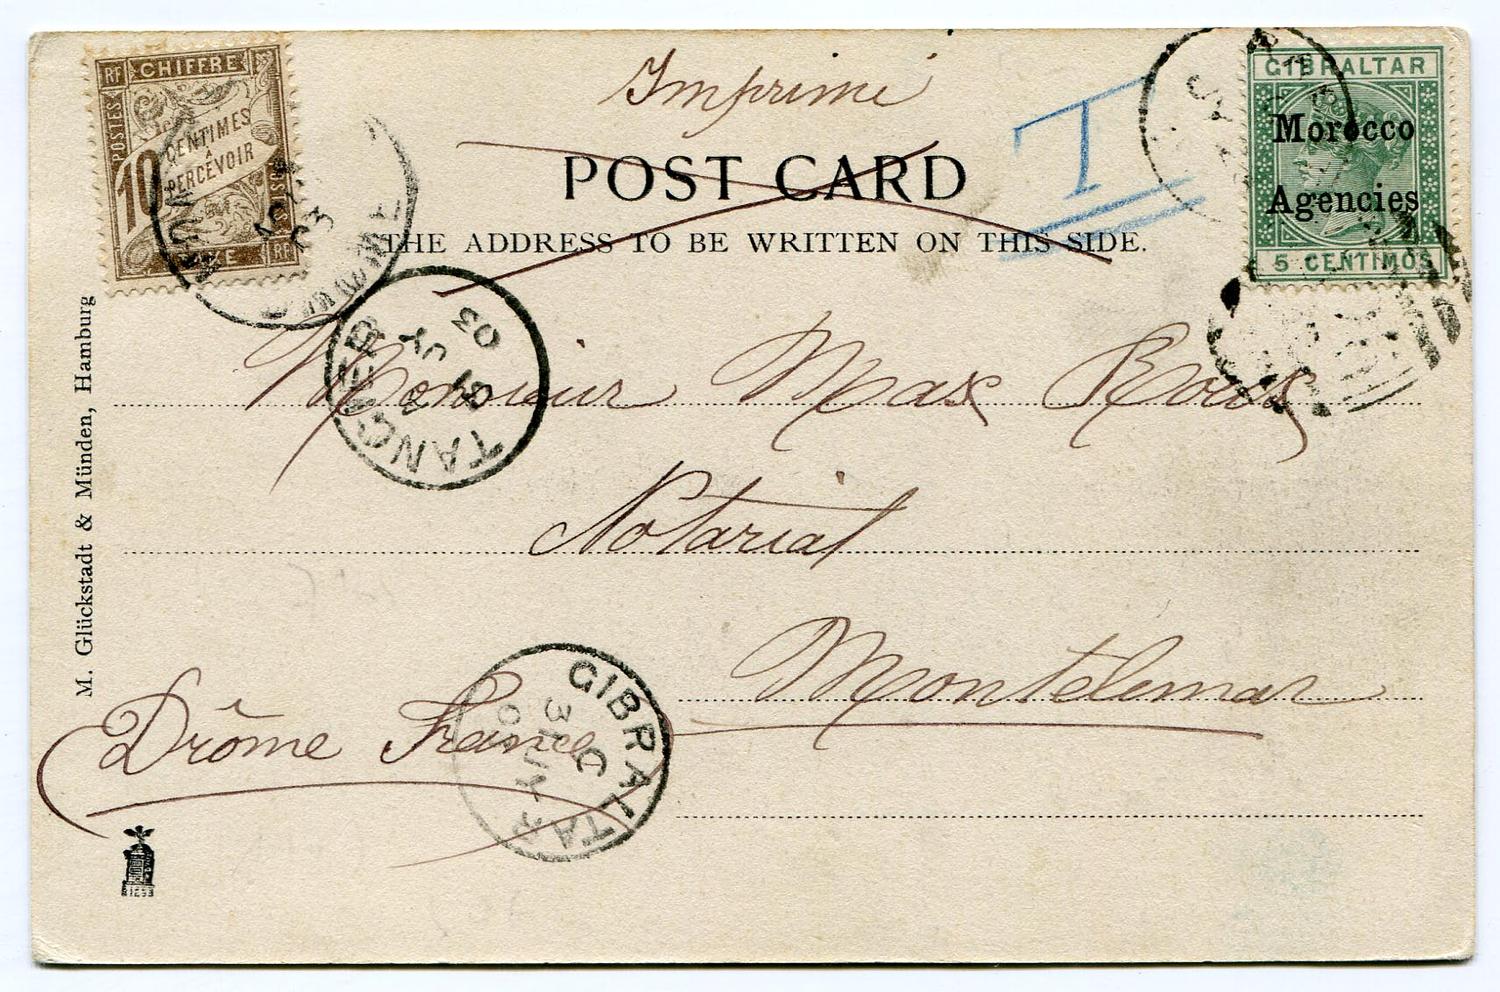 Imprimé
POST CARD
THE ADDRESS TO BE WRITTEN ON THIS SIDE.
T
RF CHIFFRE
POSTES
10
CENTIMES
À
PERCEVOIR
TAXE RF
03
GIBRALTAR
Morocco
Agencies
5 CENTIMOS
TANGIER
JY
03
Monsieur Max Roux
Notarial
Montelemar
Drôme France
GIBRALTAR
C
3 JY
M. Glückstadt & Münden, Hamburg